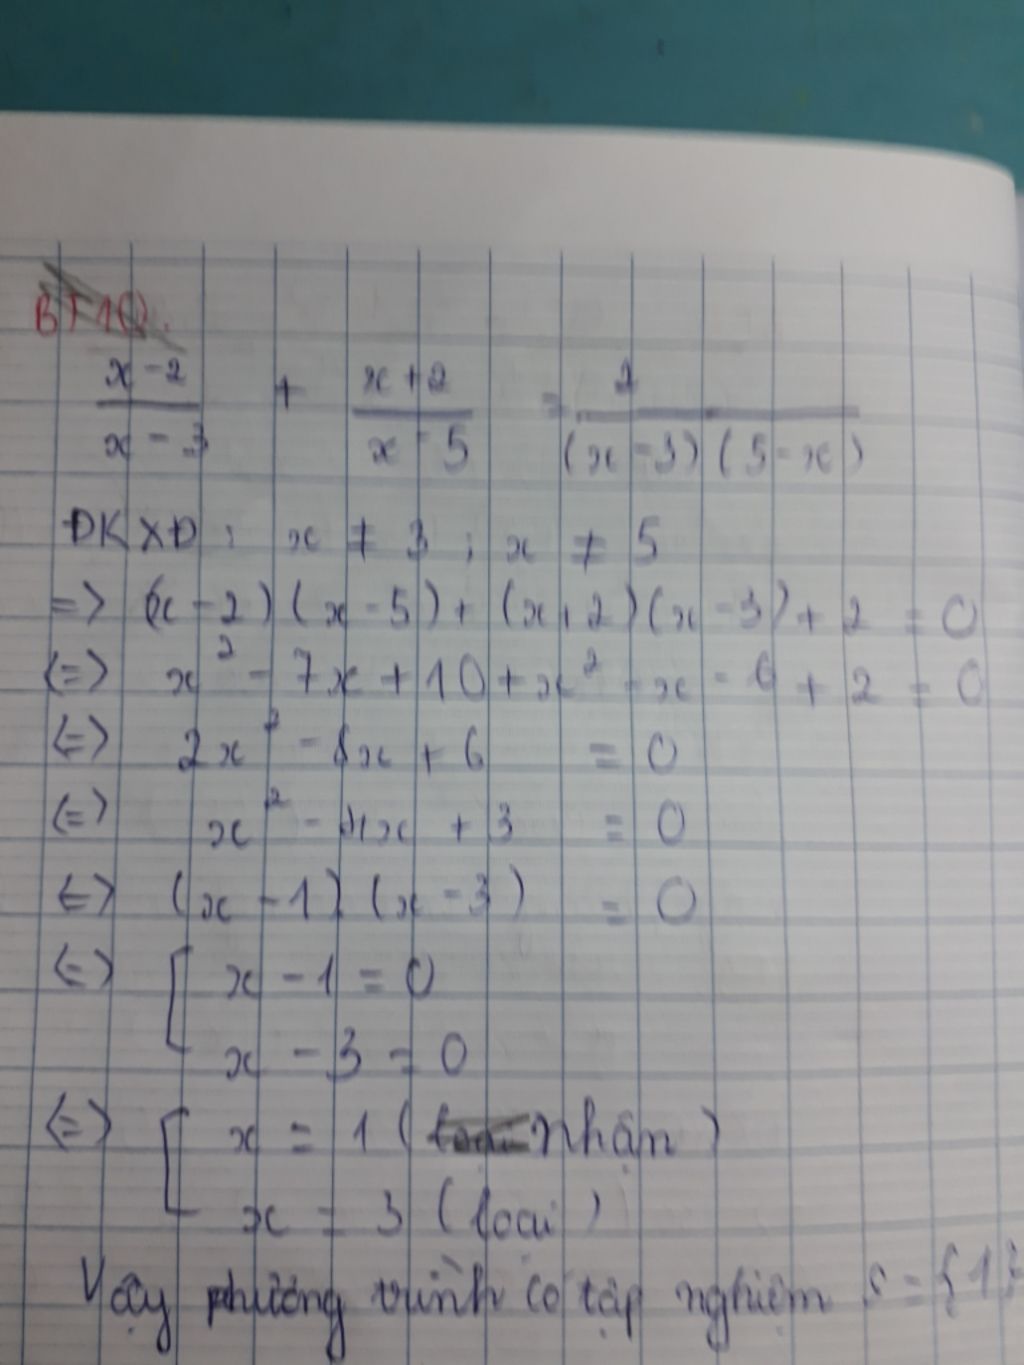 BT10.
x-2/x-3 + x+2/x-5 = 2/(x-3)(5-x)
ĐKXĐ: x ≠ 3; x ≠ 5
=> (x-2)(x-5) + (x+2)(x-3) + 2 = 0
<=> x² - 7x + 10 + x² - x - 6 + 2 = 0
<=> 2x² - 8x + 6 = 0
<=> x² - 4x + 3 = 0
<=> (x-1)(x-3) = 0
<=> [ x - 1 = 0
x - 3 = 0
<=> [ x = 1 (nhận)
x = 3 (loại)
Vậy phương trình có tập nghiệm S = {1}